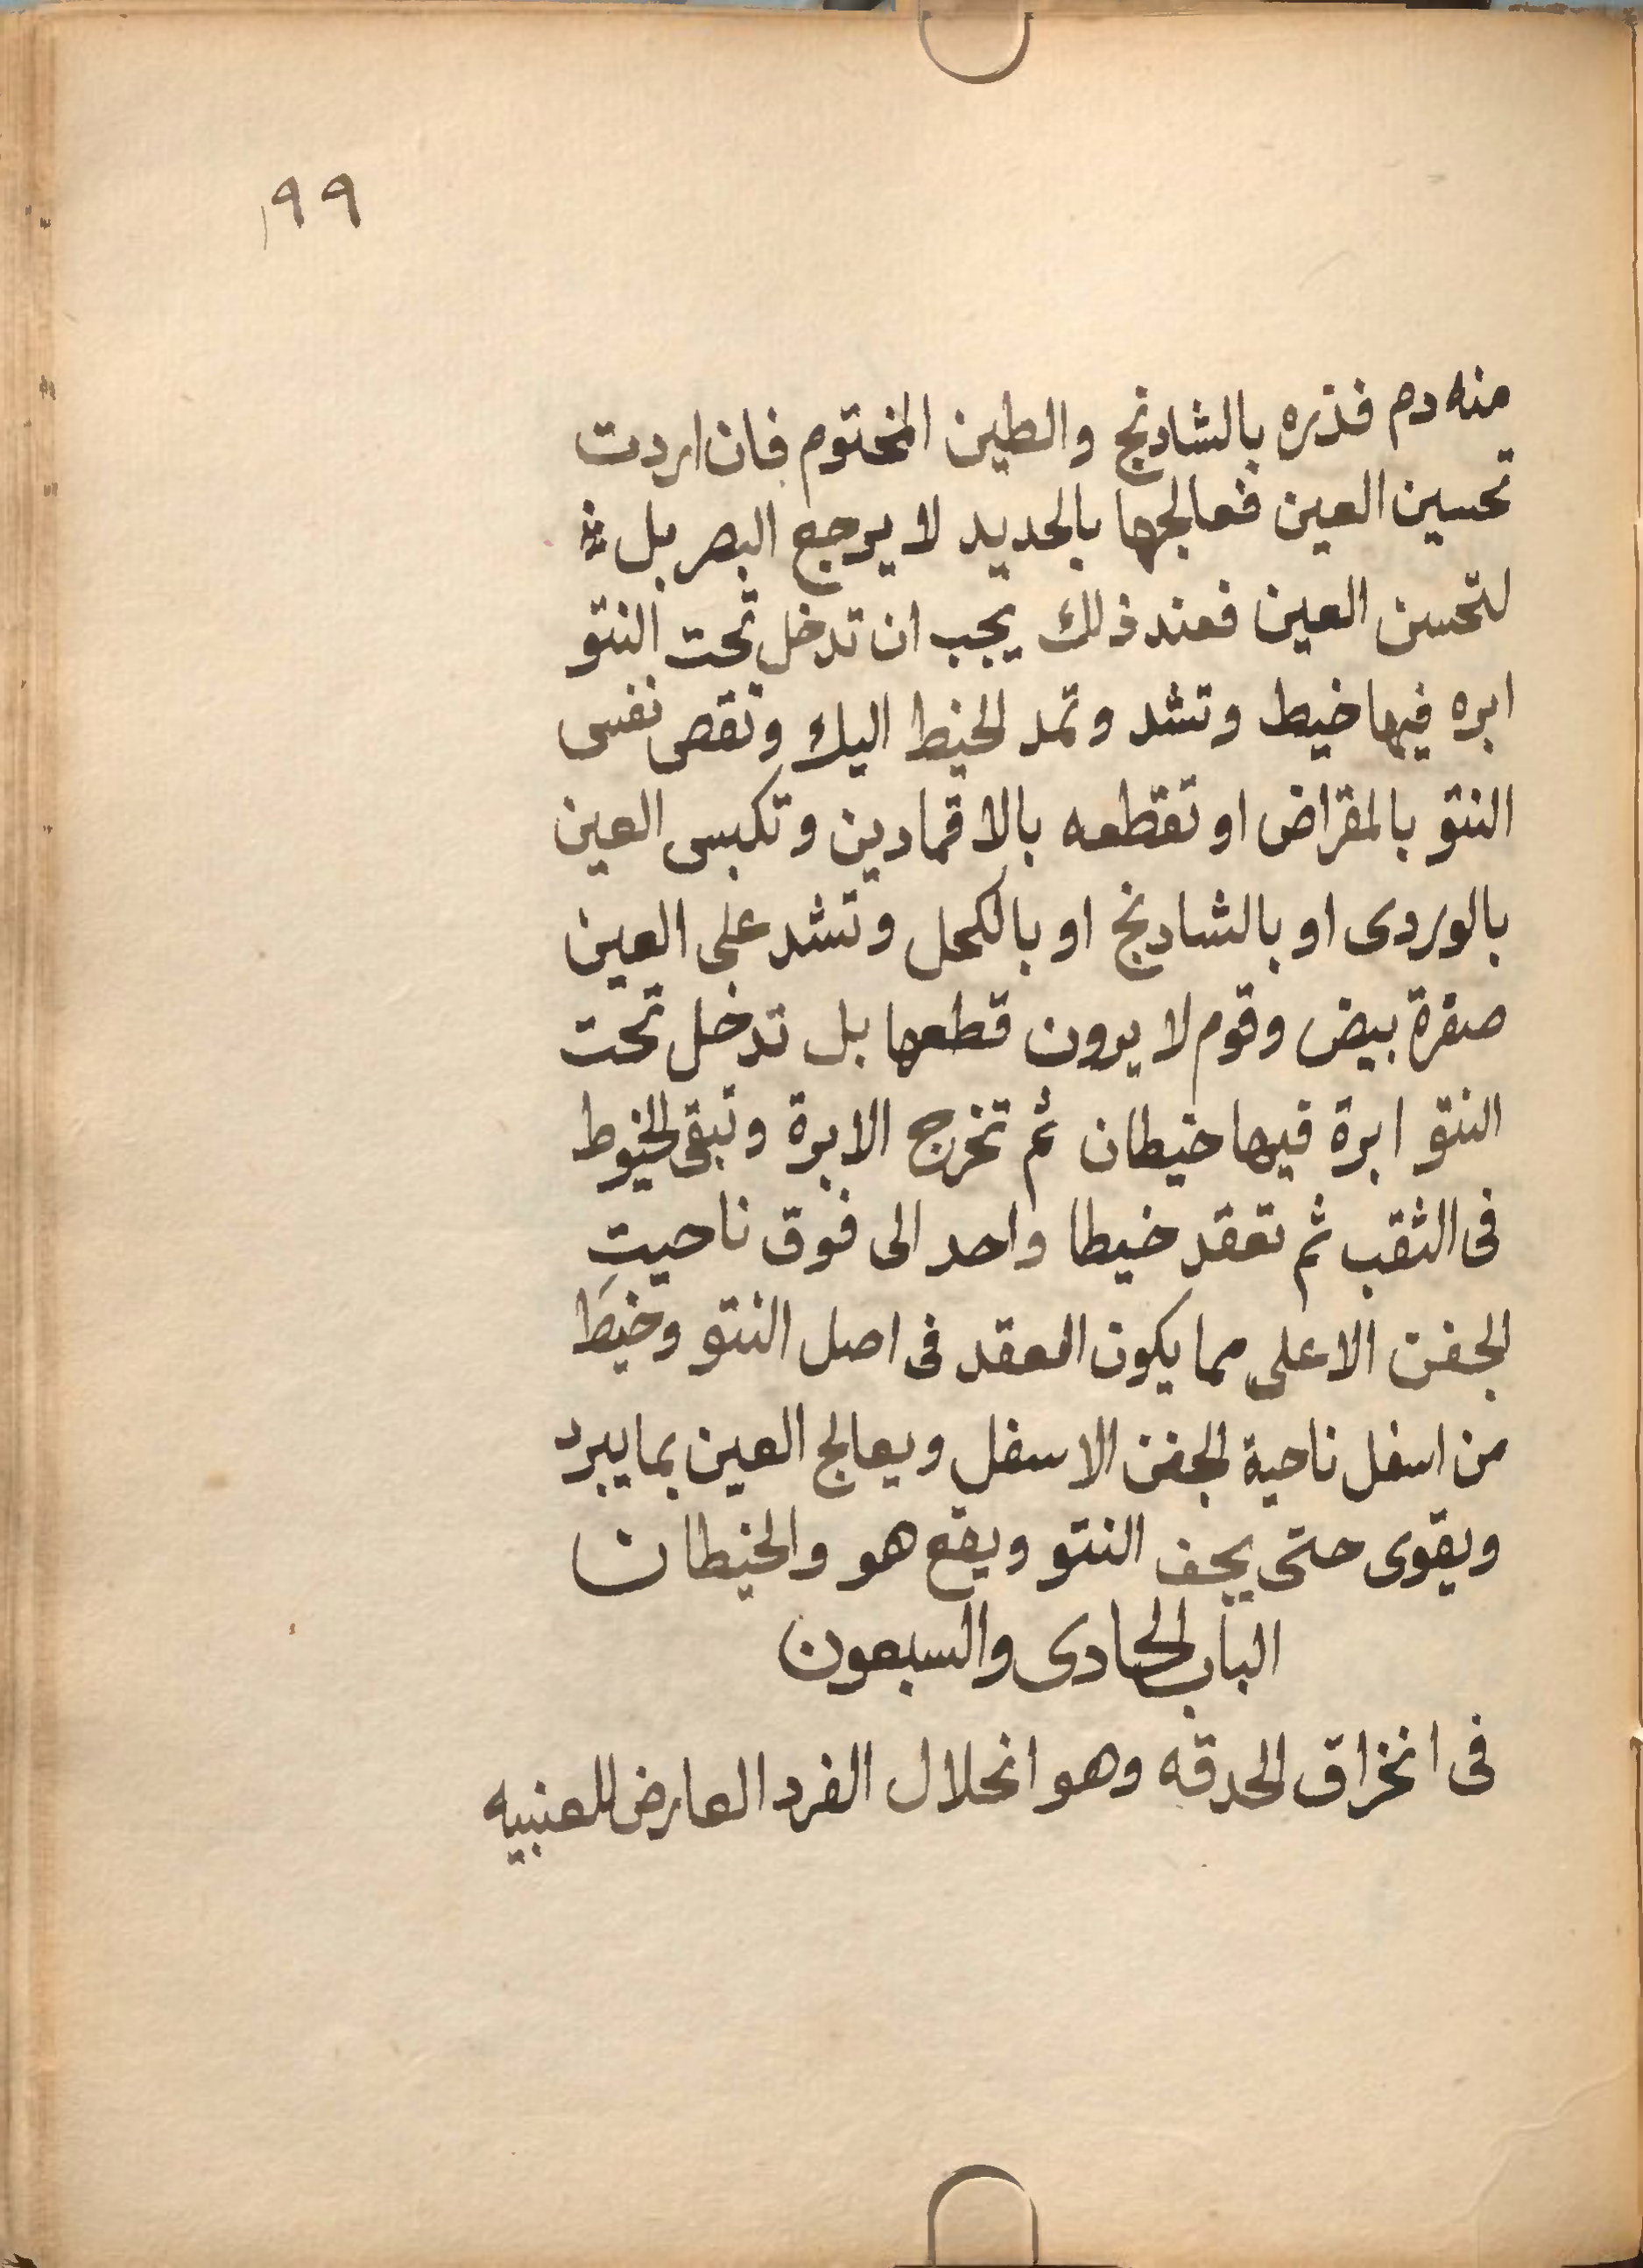 ١٩٩
منه دم فذره بالشادنج والطين المختوم فان اردت
تحسين العين فعالجها بالحديد لا يرجع البصر بل
لتحسن العين فعند ذلك يجب ان تدخل تحت النتو
ابره فيها خيط وتشد وتمد الخيط اليك وتقص نفس
النتو بالمقراض او تقطعه بالاقمادين وتكبس العين
بالوردى او بالشادنج او بالكحل وتشد على العين
صفرة بيض وقوم لا يرون قطعها بل تدخل تحت
النتو ابرة فيها خيطان ثم تخرج الابرة وتبقى الخيوط
فى الثقب ثم تعقد خيطا واحد الى فوق ناحيت
الجفن الاعلى مما يكون العقد فى اصل النتو وخيط
من اسفل ناحية الجفن الاسفل ويعالج العين بما يبرد
ويقوى حتى يجف النتو ويقع هو والخيطان
الباب الحادى والسبعون
فى انخراق الحدقه وهو انحلال الفرد العارض للعنبيه